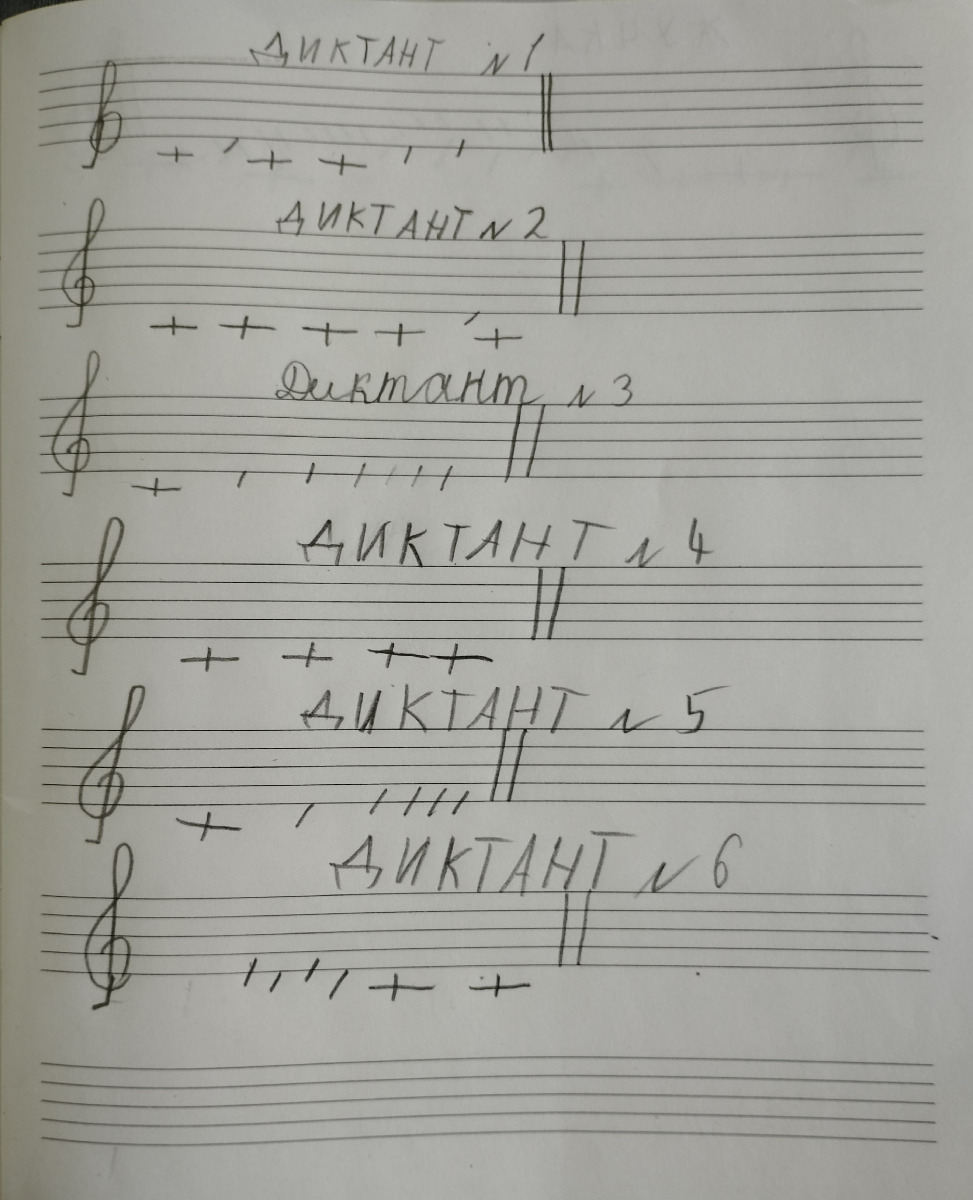 ДИКТАНТ N 1
ДИКТАНТ N 2
Диктант N 3
ДИКТАНТ N 4
ДИКТАНТ N 5
ДИКТАНТ N 6